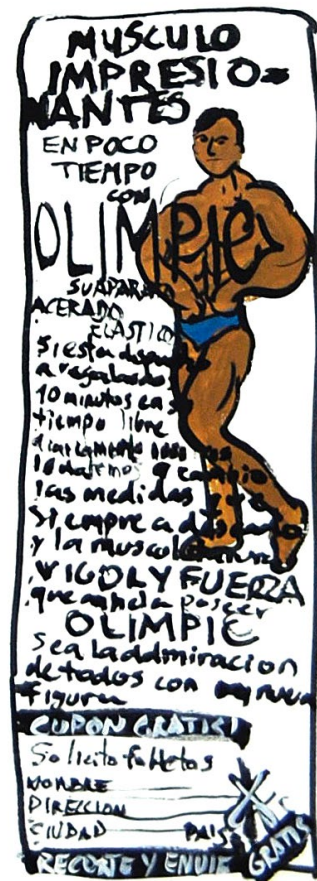 MUSCULO
IMPRESIO=
NANTES
EN POCO
TIEMPO
CON
OLIMPIC
SU APARATO
ACERADO
ELASTICO
Si esta
a regalarnos
10 minutos en s
tiempo libre
10 daremos a cambio
las medidas que
siempre a
y la
VIGOL Y FUERZA
que anhela poscer
OLIMPIC
sea la addmiracion
de todos con nueva
figura
CUPON GRATIS!
Solicito folletos
NOMBRE
DIRECCION
CIUDAD PAIS
RECORTE Y ENVIE GRATIS